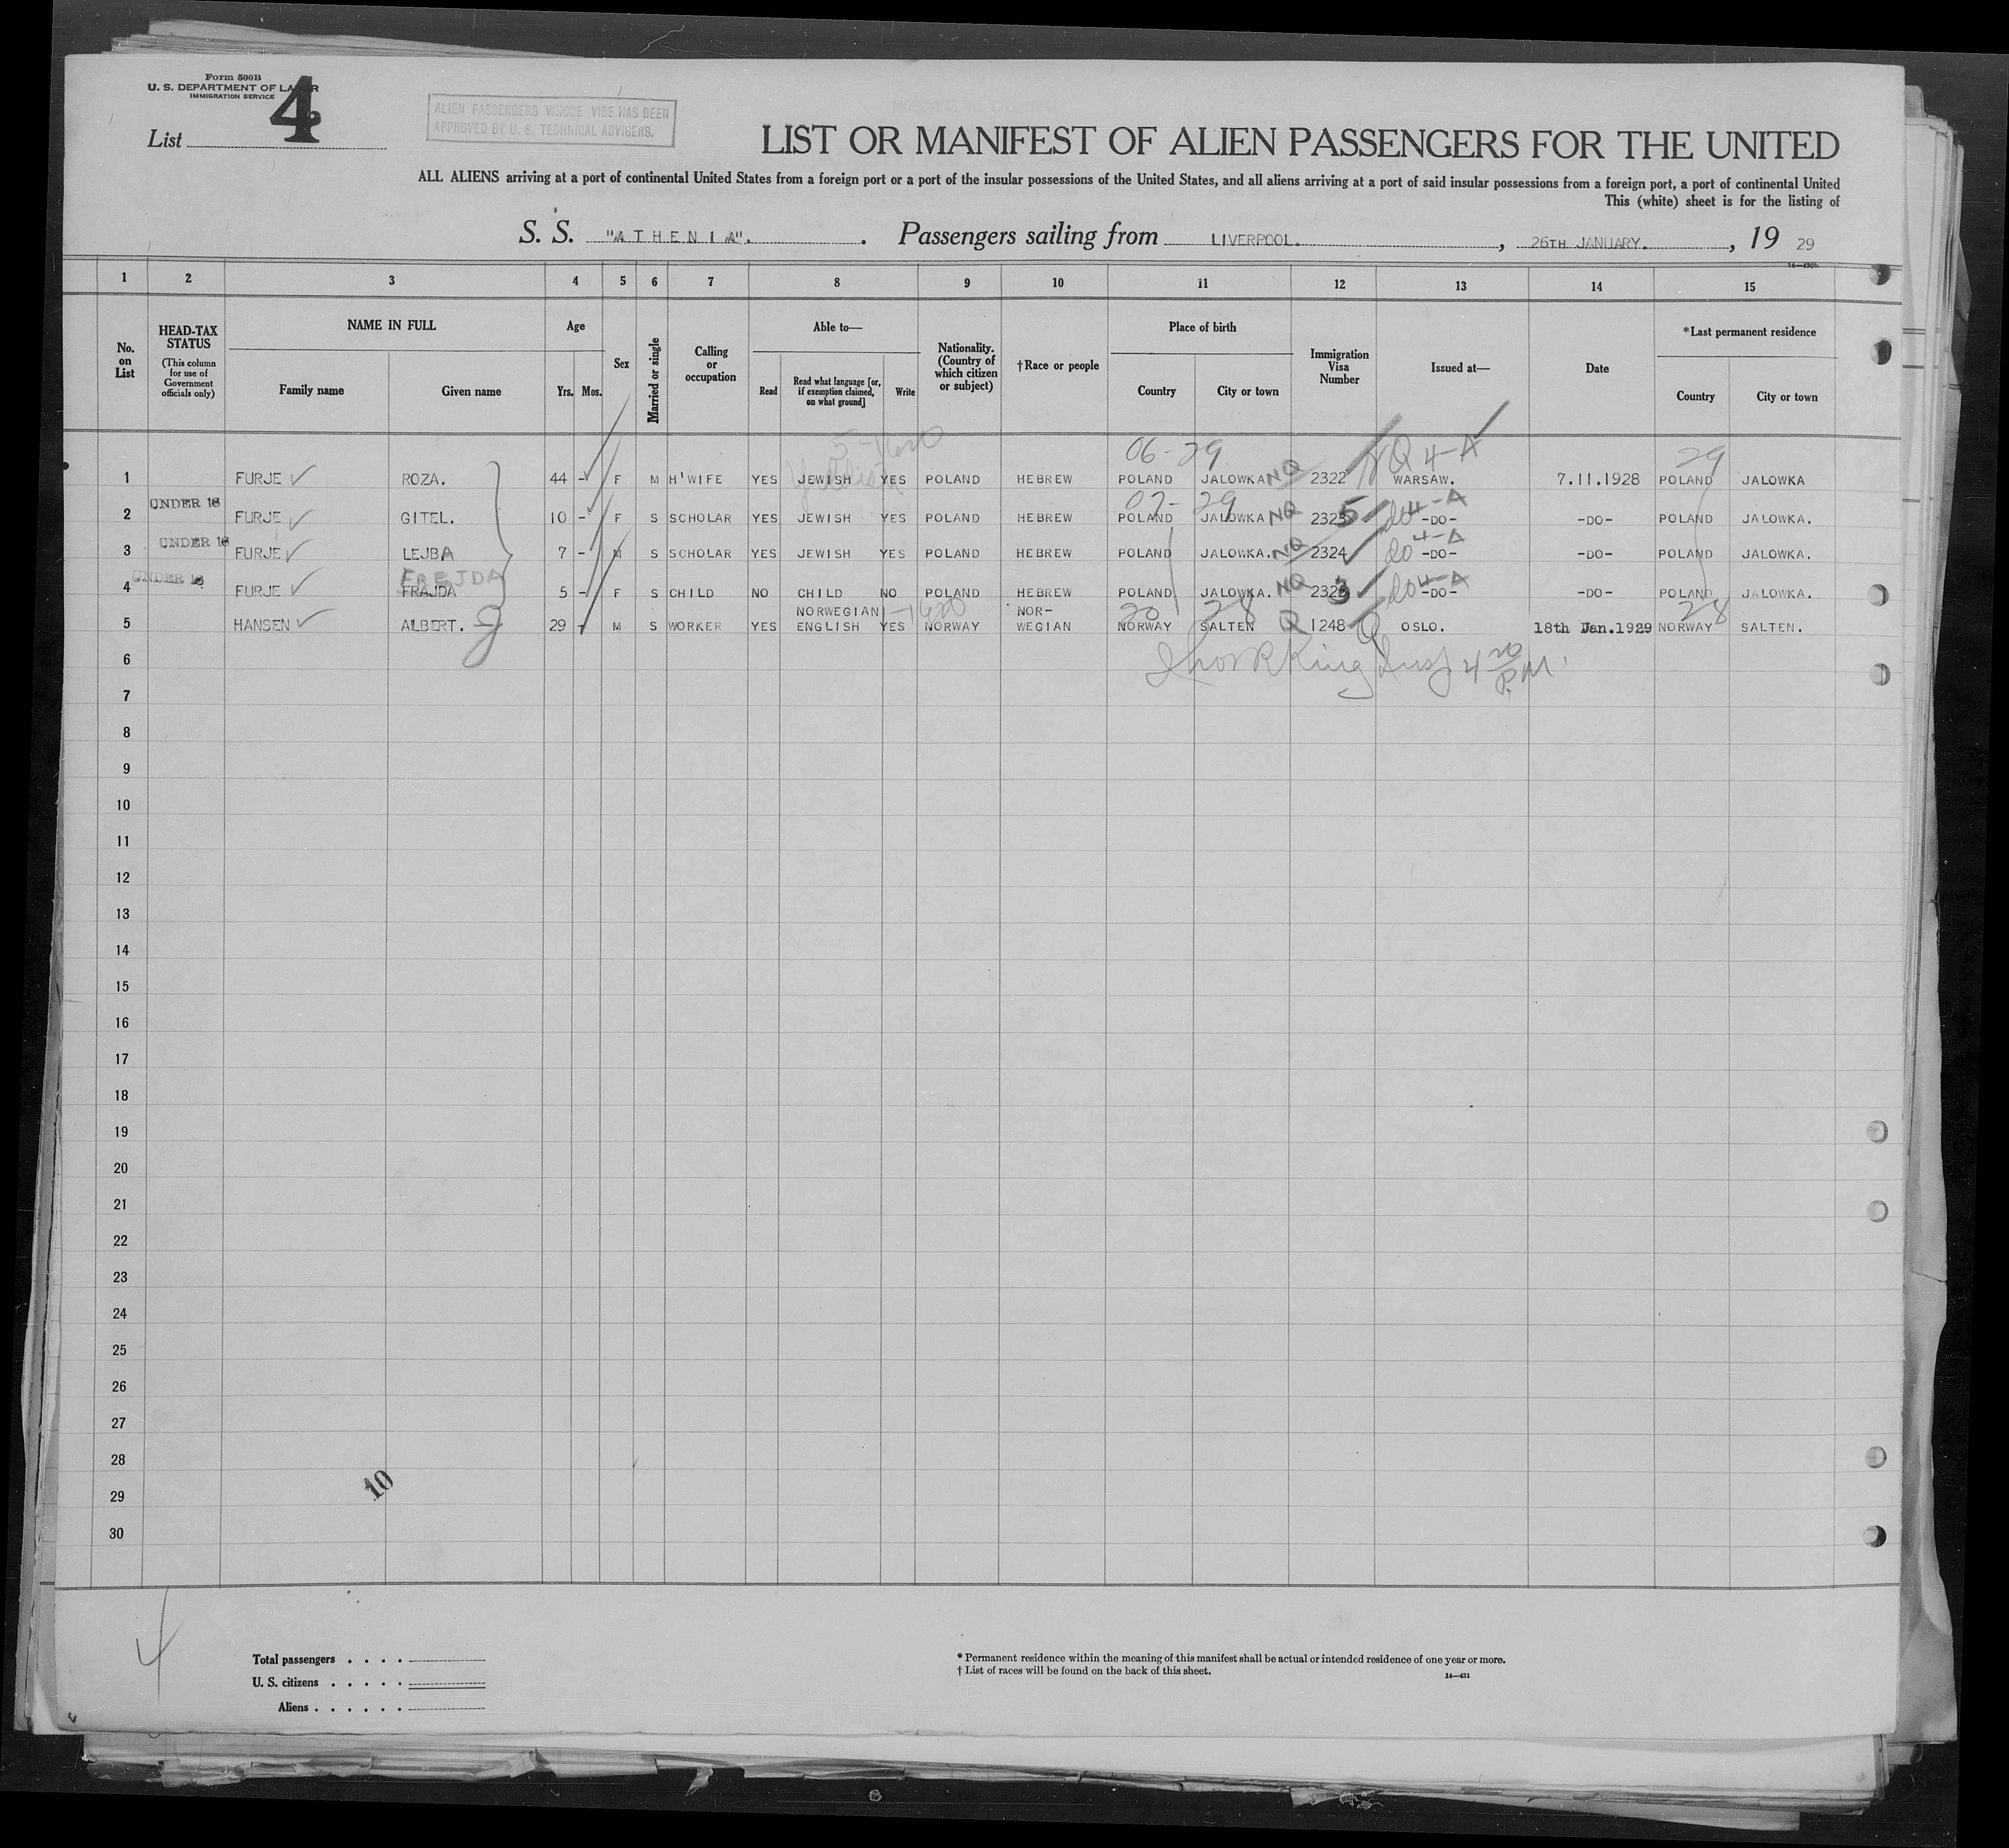 Form 500B
U. S. DEPARTMENT OF LABOR
IMMIGRATION SERVICE
List 4
ALIEN PASSENGERS WHOSE VISE HAS BEEN
APPROVED BY U. S. TECHNICAL ADVISERS.
LIST OR MANIFEST OF ALIEN PASSENGERS FOR THE UNITED
ALL ALIENS arriving at a port of continental United States from a foreign port or a port of the insular possessions of the United States, and all aliens arriving at a port of said insular possessions from a foreign port, a port of continental United
This (white) sheet is for the listing of
S. S. "ATHENIA". Passengers sailing from LIVERPOOL. , 26TH JANUARY. , 19 29
14—430b
1 2 3 4 5 6 7 8 9 10 11 12 13 14 15
No. on List
HEAD-TAX STATUS (This column for use of Government officials only)
NAME IN FULL
Family name Given name
Age
Yrs. Mos.
Sex
Married or single
Calling or occupation
Able to—
Read Read what language [or, if exemption claimed, on what ground] Write
Nationality. (Country of which citizen or subject)
†Race or people
Place of birth
Country City or town
Immigration Visa Number
Issued at—
Date
*Last permanent residence
Country City or town
06-29 NQ 4-A 29
1 FURJE ✓ ROZA. 44 - F M H'WIFE YES JEWISH Yiddish YES POLAND HEBREW POLAND JALOWKA NQ 2322 WARSAW. 7.11.1928 POLAND JALOWKA
07-29
2 UNDER 16 FURJE ✓ GITEL. 10 - F S SCHOLAR YES JEWISH YES POLAND HEBREW POLAND JALOWKA NQ 2325 do 4-A -DO- -DO- POLAND JALOWKA.
3 UNDER 16 FURJE ✓ LEJBA 7 - M S SCHOLAR YES JEWISH YES POLAND HEBREW POLAND JALOWKA. NQ 2324 do 4-A -DO- -DO- POLAND JALOWKA.
FREJDA
4 UNDER 16 FURJE ✓ FRAJDA 5 - F S CHILD NO CHILD NO POLAND HEBREW POLAND JALOWKA. NQ 2323 do 4-A -DO- -DO- POLAND JALOWKA.
NORWEGIAN NOR- 20 28 28
5 HANSEN ✓ ALBERT. 29 - M S WORKER YES ENGLISH YES NORWAY WEGIAN NORWAY SALTEN Q 1248 Q OSLO. 18th Jan.1929 NORWAY SALTEN.
King Insp 4 20 P.M.
6
7
8
9
10
11
12
13
14
15
16
17
18
19
20
21
22
23
24
25
26
27
28
29
30
10
4
Total passengers . . . .
U. S. citizens . . . . .
Aliens . . . . . .
* Permanent residence within the meaning of this manifest shall be actual or intended residence of one year or more.
† List of races will be found on the back of this sheet.
14—431